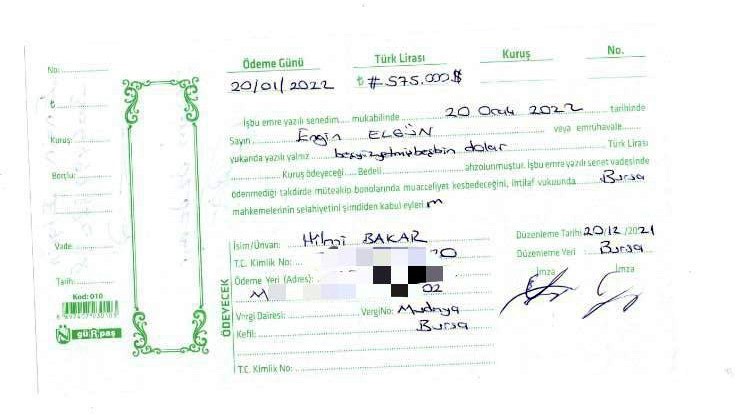 No:
₺
Kuruş:
Borçlu:
Vade
Tarih:
Kod: 010
gürpaş
Ödeme Günü Türk Lirası Kuruş No.
20/01/2022 ₺ #575.000$
İşbu emre yazılı senedim mukabilinde 20 Ocak 2022 tarihinde
Sayın Engin ELGÜN veya emrühavale
yukarıda yazılı yalnız beşyüzyetmişbeşbin dolar Türk Lirası
Kuruş ödeyeceği Bedeli ahzolunmuştur. İşbu emre yazılı senet vadesinde
ödenmediği takdirde müteakip bonolarında muacceliyet kesbedeceğini, ihtilaf vukuunda Bursa
mahkemelerinin selahiyetini şimdiden kabul eyleri m
ÖDEYECEK
İsim/Ünvan: Hilmi BAKAR
T.C. Kimlik No:
Ödeme Yeri (Adres):
M 02
Vergi Dairesi: VergiNo: Mudanya
Kefil: Bursa
T.C. Kimlik No:
Düzenleme Tarihi 20/12/2021
Düzenleme Yeri Bursa
İmza İmza